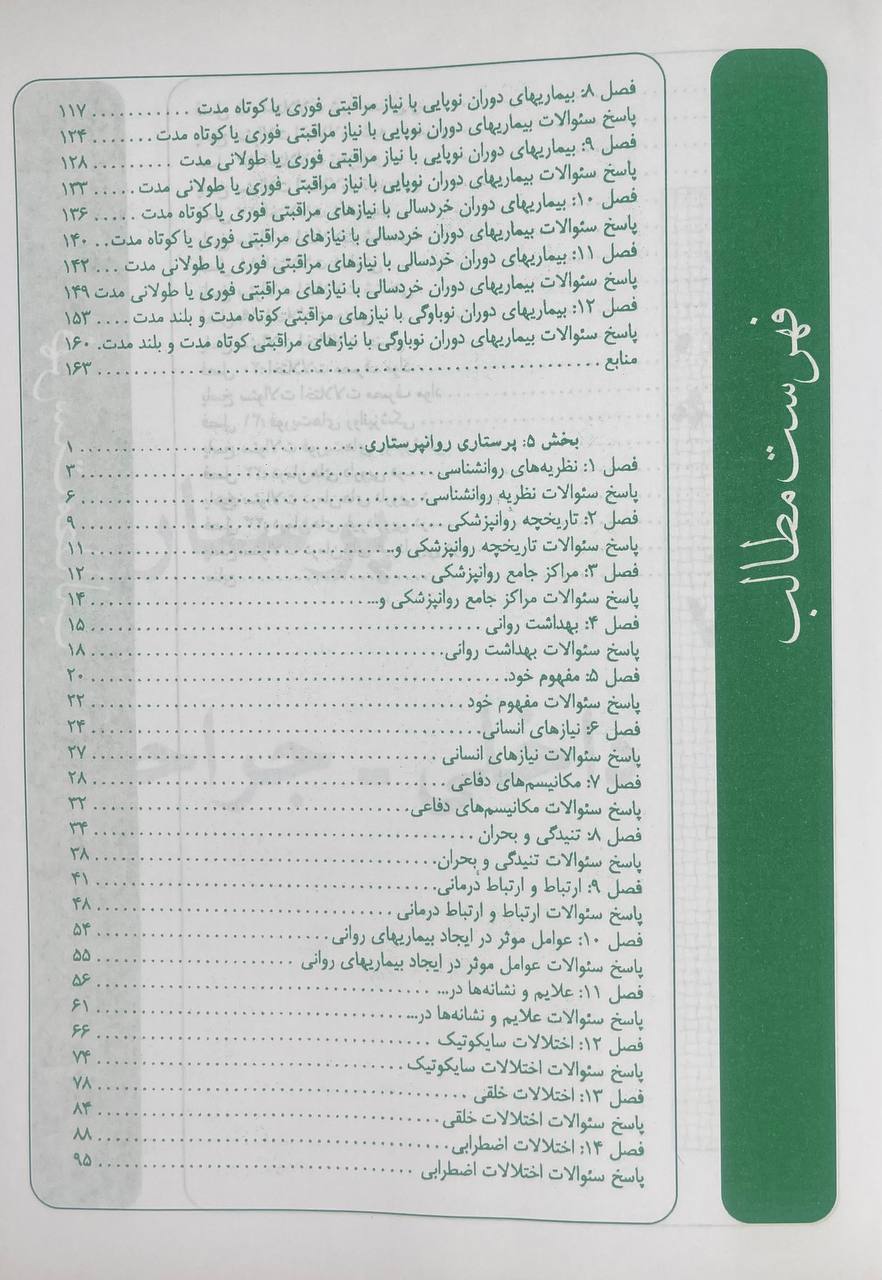 فهرست مطالب
فصل ۸: بیماریهای دوران نوپایی با نیاز مراقبتی فوری یا کوتاه مدت ........... ۱۱۷
پاسخ سئوالات بیماریهای دوران نوپایی با نیاز مراقبتی فوری یا کوتاه مدت ....... ۱۲۴
فصل ۹: بیماریهای دوران نوپایی با نیاز مراقبتی فوری یا طولانی مدت .......... ۱۲۸
پاسخ سئوالات بیماریهای دوران نوپایی با نیاز مراقبتی فوری یا طولانی مدت ...... ۱۳۳
فصل ۱۰: بیماریهای دوران خردسالی با نیازهای مراقبتی فوری یا کوتاه مدت ..... ۱۳۶
پاسخ سئوالات بیماریهای دوران خردسالی با نیازهای مراقبتی فوری یا کوتاه مدت .. ۱۴۰
فصل ۱۱: بیماریهای دوران خردسالی با نیازهای مراقبتی فوری یا طولانی مدت ... ۱۴۲
پاسخ سئوالات بیماریهای دوران خردسالی با نیازهای مراقبتی فوری یا طولانی مدت ۱۴۹
فصل ۱۲: بیماریهای دوران نوباوگی با نیازهای مراقبتی کوتاه مدت و بلند مدت .... ۱۵۳
پاسخ سئوالات بیماریهای دوران نوباوگی با نیازهای مراقبتی کوتاه مدت و بلند مدت . ۱۶۰
منابع .......... ۱۶۳
بخش ۵: پرستاری روانپرستاری .......... ۱
فصل ۱: نظریه‌های روانشناسی .......... ۳
پاسخ سئوالات نظریه روانشناسی .......... ۶
فصل ۲: تاریخچه روانپزشکی .......... ۹
پاسخ سئوالات تاریخچه روانپزشکی و... .......... ۱۱
فصل ۳: مراکز جامع روانپزشکی .......... ۱۲
پاسخ سئوالات مراکز جامع روانپزشکی و... .......... ۱۴
فصل ۴: بهداشت روانی .......... ۱۵
پاسخ سئوالات بهداشت روانی .......... ۱۸
فصل ۵: مفهوم خود .......... ۲۰
پاسخ سئوالات مفهوم خود .......... ۲۲
فصل ۶: نیازهای انسانی .......... ۲۴
پاسخ سئوالات نیازهای انسانی .......... ۲۷
فصل ۷: مکانیسم‌های دفاعی .......... ۲۸
پاسخ سئوالات مکانیسم‌های دفاعی .......... ۳۲
فصل ۸: تنیدگی و بحران .......... ۳۴
پاسخ سئوالات تنیدگی و بحران .......... ۳۸
فصل ۹: ارتباط و ارتباط درمانی .......... ۴۱
پاسخ سئوالات ارتباط و ارتباط درمانی .......... ۴۸
فصل ۱۰: عوامل موثر در ایجاد بیماریهای روانی .......... ۵۴
پاسخ سئوالات عوامل موثر در ایجاد بیماریهای روانی .......... ۵۵
فصل ۱۱: علایم و نشانه‌ها در... .......... ۵۶
پاسخ سئوالات علایم و نشانه‌ها در... .......... ۶۱
فصل ۱۲: اختلالات سایکوتیک .......... ۶۶
پاسخ سئوالات اختلالات سایکوتیک .......... ۷۴
فصل ۱۳: اختلالات خلقی .......... ۷۸
پاسخ سئوالات اختلالات خلقی .......... ۸۴
فصل ۱۴: اختلالات اضطرابی .......... ۸۸
پاسخ سئوالات اختلالات اضطرابی .......... ۹۵